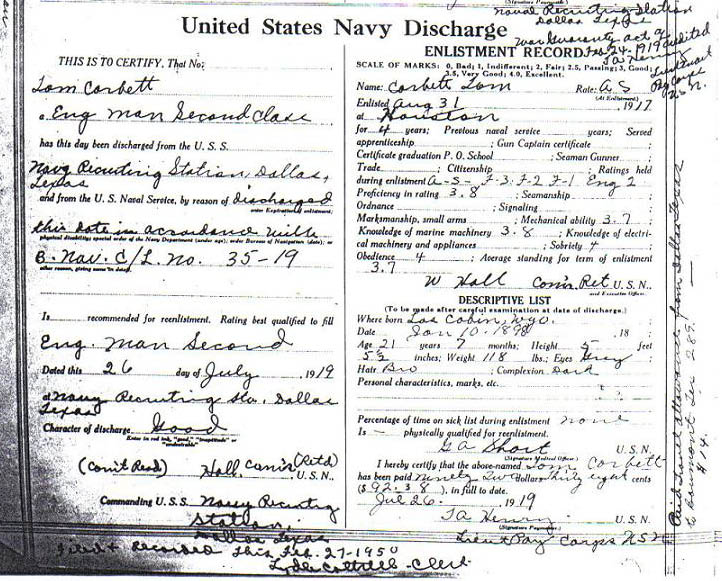 United States Navy Discharge
THIS IS TO CERTIFY, That No:
Tom Corbett
a Eng man Second Class
has this day been discharged from the U. S. S.
Navy Recruiting Station, Dallas,
Texas
and from the U. S. Naval Service, by reason of discharged
under Expiration of enlistment;
this date in accordance with
physical disability; special order of the Navy Department (under age); order Bureau of Navigation (date); or
B. Nav. C/L. No. 35-19
other reason, giving same in detail.
Is recommended for reenlistment. Rating best qualified to fill
Eng. man Second
Dated this 26 day of July 1919
at Navy Recruiting Sta. Dallas
Texas
Character of discharge Good
Enter in red ink, "good," "inaptitude" or
"undesirable"
Hall, Com'r (Ret'd)
U. S. N.
Commanding U. S. S. Navy Recruiting
Station,
Dallas Texas
Filed & Recorded this Feb. 27-1950
Clerk
Naval Recruiting Station
Dallas Texas
War Gratuity act of
Feb. 24, 1919 credited
Lieutenant
Pay Corps
ENLISTMENT RECORD
SCALE OF MARKS: 0, Bad; 1, Indifferent; 2, Fair; 2.5, Passing; 3, Good;
3.5, Very Good; 4.0, Excellent.
Name: Corbett Tom Rate: A S
(At Enlistment)
Enlisted Aug 31 1917
at Houston
for 4 years; Previous naval service years; Served
apprenticeship ; Gun Captain certificate ;
Certificate graduation P. O. School ; Seaman Gunner ;
Trade ; Citizenship ; Ratings held
during enlistment A-S- F-3. F-2 F-1 Eng 2
Proficiency in rating 3.8 ; Seamanship ;
Ordnance ; Signaling ;
Marksmanship, small arms ; Mechanical ability 3.7 ;
Knowledge of marine machinery 3.8 ; Knowledge of electri-
cal machinery and appliances ; Sobriety 4
Obedience 4 ; Average standing for term of enlistment
3.7
W Hall Com'r. Ret U. S. N.
and Executive Officer.
DESCRIPTIVE LIST
(To be made after careful examination at date of discharge.)
Where born Los Cobin, Wyo.
Date Jan 10-1898 , 18 ;
Age 21 years 7 months; Height 5 feet
5½ inches; Weight 118 lbs.; Eyes Gray
Hair Bro ; Complexion Dark
Personal characteristics, marks, etc.
Percentage of time on sick list during enlistment none
Is — physically qualified for reenlistment.
G A Short U. S. N.
(Signature Medical Officer)
I hereby certify that the above-named Tom Corbett
has been paid Ninety Two dollars Thirty eight cents
($ 92.38 ), in full to date.
Jul 26. 1919
J A Henry U. S N.
(Signature Paymaster)
Lieut Pay Corps USN
Paid travel allowance from Dallas Texas
to Beaumont Tex 289
$ 14.